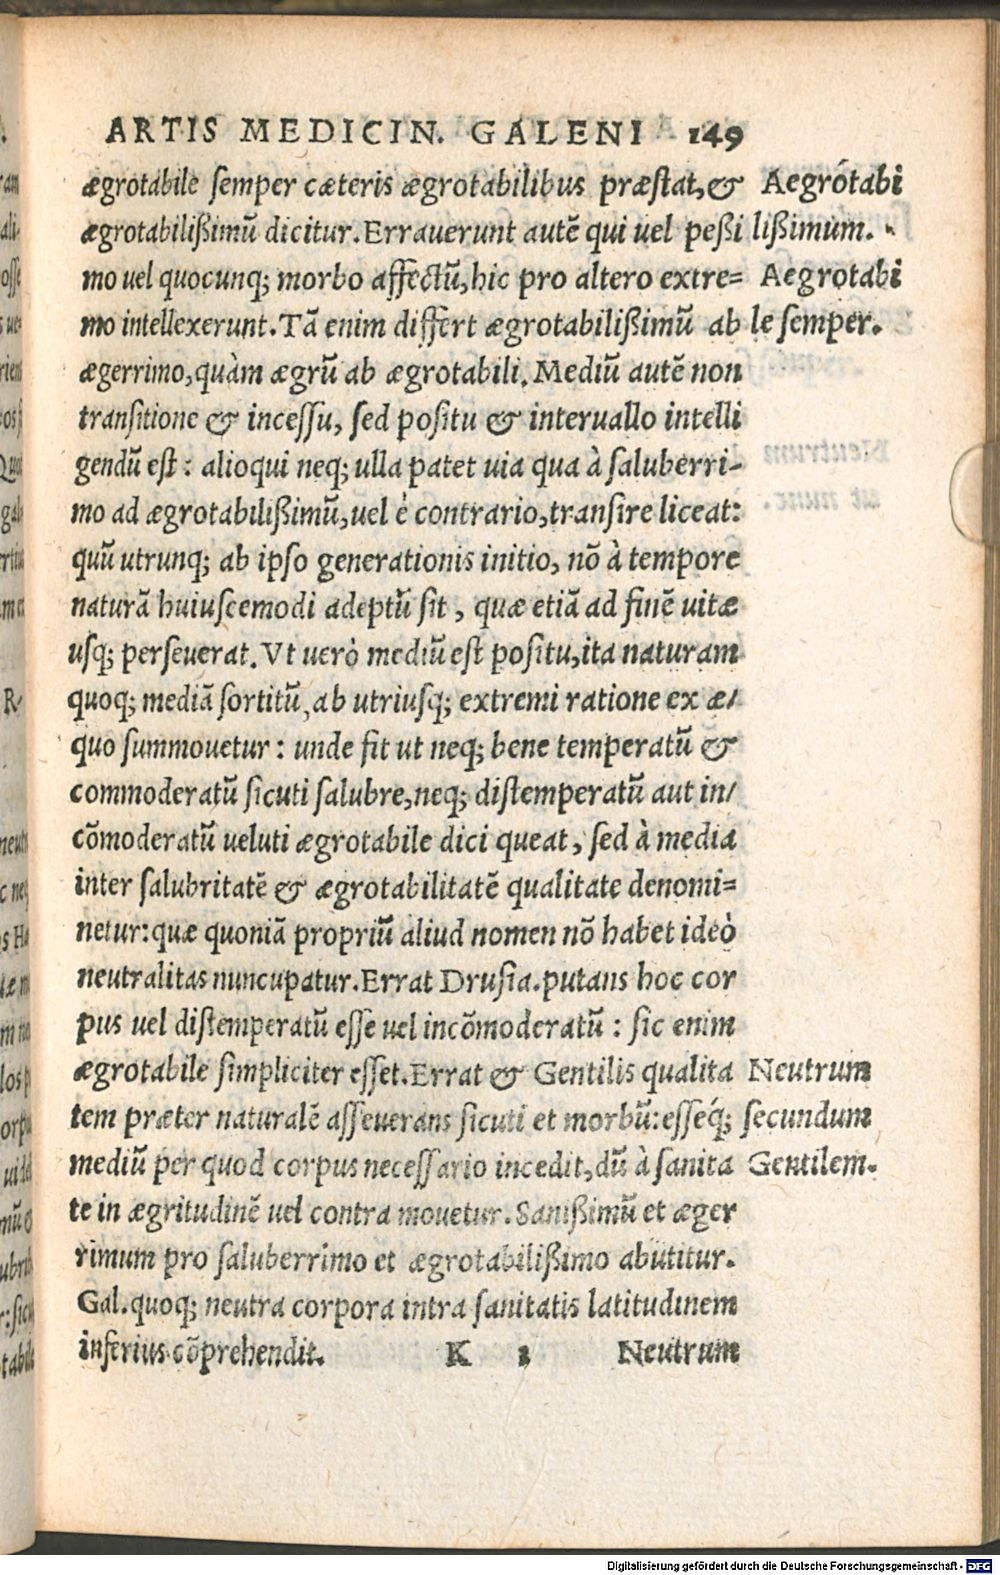 ARTIS MEDICIN. GALENI 149
ægrotabile semper cæteris ægrotabilibus præstat,& Aegrótabi
ægrotabilißimũ dicitur. Errauerunt autẽ qui uel peßi lißimum.
mo uel quocunq; morbo affectũ, hic pro altero extre= Aegrotabi
mo intellexerunt. Tã enim differt ægrotabilißimũ ab le semper.
ægerrimo, quàm ægrũ ab ægrotabili. Mediũ autẽ non
transitione & incessu, sed positu & interuallo intelli
gendũ est: alioqui neq; ulla patet uia qua à saluberri-
mo ad ægrotabilißimũ, uel è contrario, transire liceat:
quũ utrunq; ab ipso generationis initio, nõ à tempore
naturã huiuscemodi adeptũ sit, quæ etiã ad finẽ uitæ
usq; perseuerat. Vt uerò mediũ est positu, ita naturam
quoq; mediã sortitũ, ab utriusq; extremi ratione ex æ/
quo summouetur: unde fit ut neq; bene temperatũ &
commoderatũ sicuti salubre, neq; distemperatũ aut in/
cõmoderatũ ueluti ægrotabile dici queat, sed à media
inter salubritatẽ & ægrotabilitatẽ qualitate denomi=
netur: quæ quoniã propriũ aliud nomen nõ habet ideò
neutralitas nuncupatur. Errat Drusia. putans hoc cor
pus uel distemperatũ esse uel incõmoderatũ: sic enim
ægrotabile simpliciter esset. Errat & Gentilis qualita Neutrum
tem præter naturalẽ asseuerans sicuti et morbũ: esseq́; secundum
mediũ per quod corpus necessario incedit, dũ à sanita Gentilem.
te in ægritudinẽ uel contra mouetur. Sanißimũ et æger
rimum pro saluberrimo et ægrotabilißimo abutitur.
Gal. quoq; neutra corpora intra sanitatis latitudinem
inferius cõprehendit. K 1 Neutrum
Digitalisierung gefördert durch die Deutsche Forschungsgemeinschaft - DFG